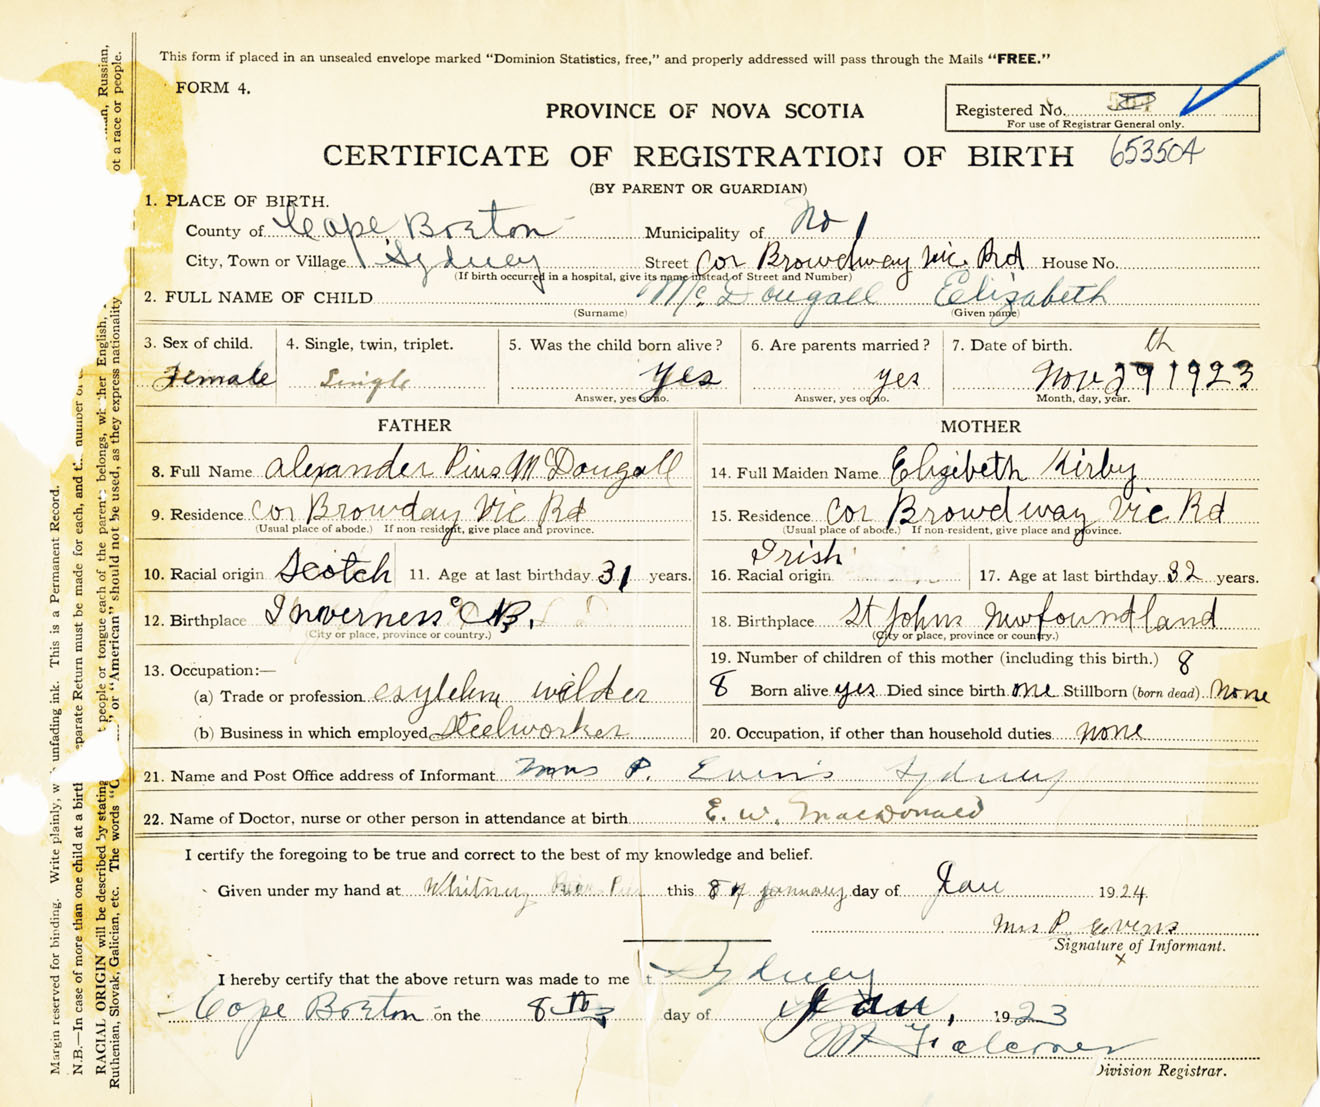 This form if placed in an unsealed envelope marked "Dominion Statistics, free," and properly addressed will pass through the Mails "FREE."
FORM 4.
PROVINCE OF NOVA SCOTIA
Registered No.
For use of Registrar General only.
CERTIFICATE OF REGISTRATION OF BIRTH 653504
(BY PARENT OR GUARDIAN)
1. PLACE OF BIRTH.
County of Cape Breton Municipality of No 1
City, Town or Village Sydney Street Cor Browdway Vic. Rd House No.
(If birth occurred in a hospital, give its name instead of Street and Number)
2. FULL NAME OF CHILD McDougall Elizabeth
(Surname) (Given name)
3. Sex of child. 4. Single, twin, triplet. 5. Was the child born alive? 6. Are parents married? 7. Date of birth.
Female Single Yes yes Nov 29th 1923
Answer, yes or no. Answer, yes or no. Month, day, year.
FATHER
8. Full Name Alexander Pius McDougall
9. Residence Cor Browday Vic Rd
(Usual place of abode.) If non resident, give place and province.
10. Racial origin Scotch 11. Age at last birthday 31 years.
12. Birthplace Inverness C.B.
(City or place, province or country.)
13. Occupation:—
(a) Trade or profession
(b) Business in which employed Steelworker
MOTHER
14. Full Maiden Name Elizibeth Kirby
15. Residence Cor Browdway Vic Rd
(Usual place of abode.) If non-resident, give place and province.
16. Racial origin Irish 17. Age at last birthday 32 years.
18. Birthplace St Johns Newfoundland
(City or place, province or country.)
19. Number of children of this mother (including this birth.) 8
8 Born alive yes Died since birth one Stillborn (born dead) None
20. Occupation, if other than household duties none
21. Name and Post Office address of Informant Mrs P. Evens Sydney
22. Name of Doctor, nurse or other person in attendance at birth E. W. MacDonald
I certify the foregoing to be true and correct to the best of my knowledge and belief.
Given under my hand at Whitney Pier this 8 of January day of Jan 1924
Mrs P. Evens
Signature of Informant.
X
I hereby certify that the above return was made to me Sydney
Cape Breton on the 8th day of Jan, 1923
Division Registrar.
Margin reserved for binding. Write plainly, unfading ink. This is a Permanent Record.
N.B.—In case of more than one child at a birth separate Return must be made for each, and number
RACIAL ORIGIN will be described by stating people or tongue each of the parents belongs, whether English, Russian,
Ruthenian, Slovak, Galician, etc. The words or "American" should not be used, as they express nationality not a race or people.